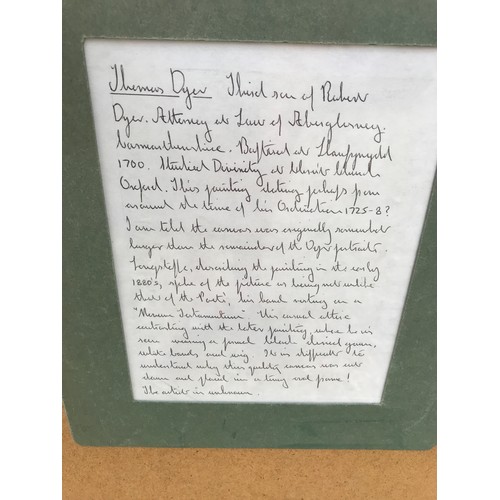 Thomas Dyer Third son of Robert
Dyer. Attorney at Law of Aberglasney.
Carmarthenshire. Baptised at Llanfynydd
1700. Studied Divinity at Christ Church
Oxford. This painting dating perhaps from
around the time of his Ordination 1725-8?
I am told the canvas was originally somewhat
larger than the remainder of the Dyer portraits.
Longstaffe, describing the painting in the early
1880's, spoke of the picture as being not unlike
that of the Poet's, his hand resting on a
"Novum Testamentum" His casual attire
contrasting with the later painting, where he is
seen wearing a formal black clerical gown,
white bands and wig. It is difficult to
understand why this quality canvas was cut
down and placed in a tiny oval frame!
The artist is unknown.